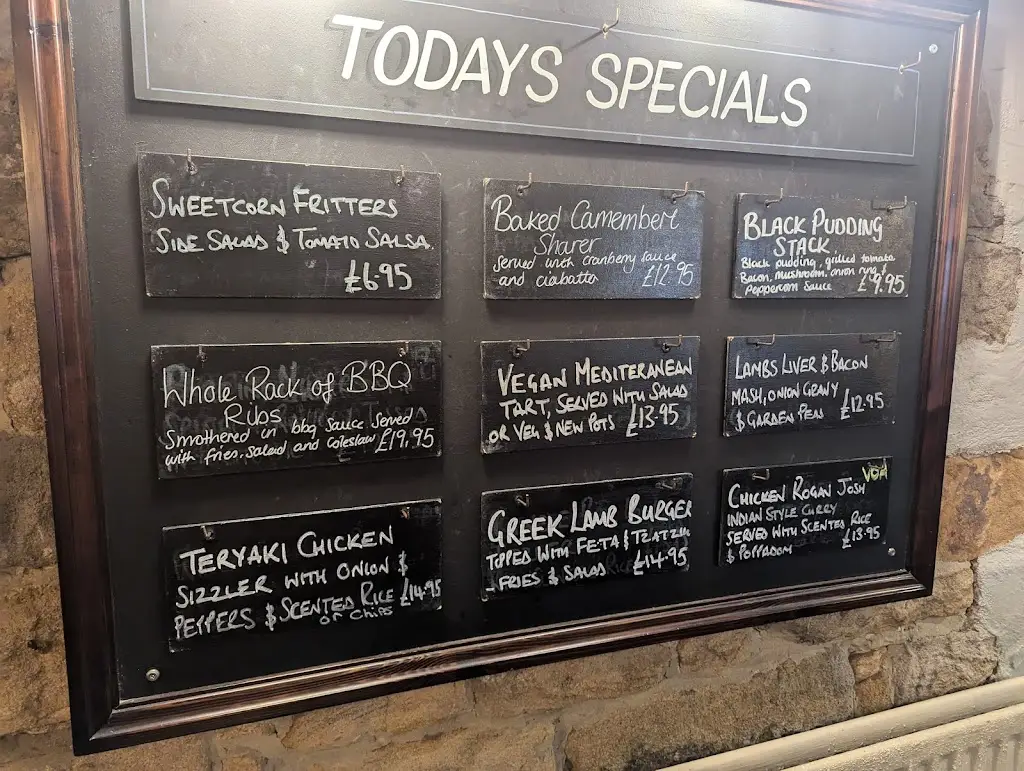 TODAYS SPECIALS
SWEETCORN FRITTERS
SIDE SALAD & TOMATO SALSA
£6.95
Baked Camembert
Sharer
served with cranberry sauce
and ciabatta £12.95
BLACK PUDDING
STACK
Black pudding, grilled tomato
Bacon, mushroom, onion ring &
Peppercorn Sauce £9.95
Whole Rack of BBQ
Ribs
Smothered in bbq sauce Served
with fries, salad and coleslaw £19.95
VEGAN MEDITERANEAN
TART, SERVED WITH SALAD
OR VEG & NEW POTS £13.95
LAMBS LIVER & BACON
MASH, ONION GRAVY
& GARDEN PEAS £12.95
TERYAKI CHICKEN
SIZZLER WITH ONION &
PEPPERS & SCENTED RICE £14.95
or chips
GREEK LAMB BURGER
TOPPED WITH FETA & TZATZIKI
FRIES & SALAD £14.95
VOA
CHICKEN ROGAN JOSH
INDIAN STYLE CURRY
SERVED WITH SCENTED RICE
& POPPADOM £13.95